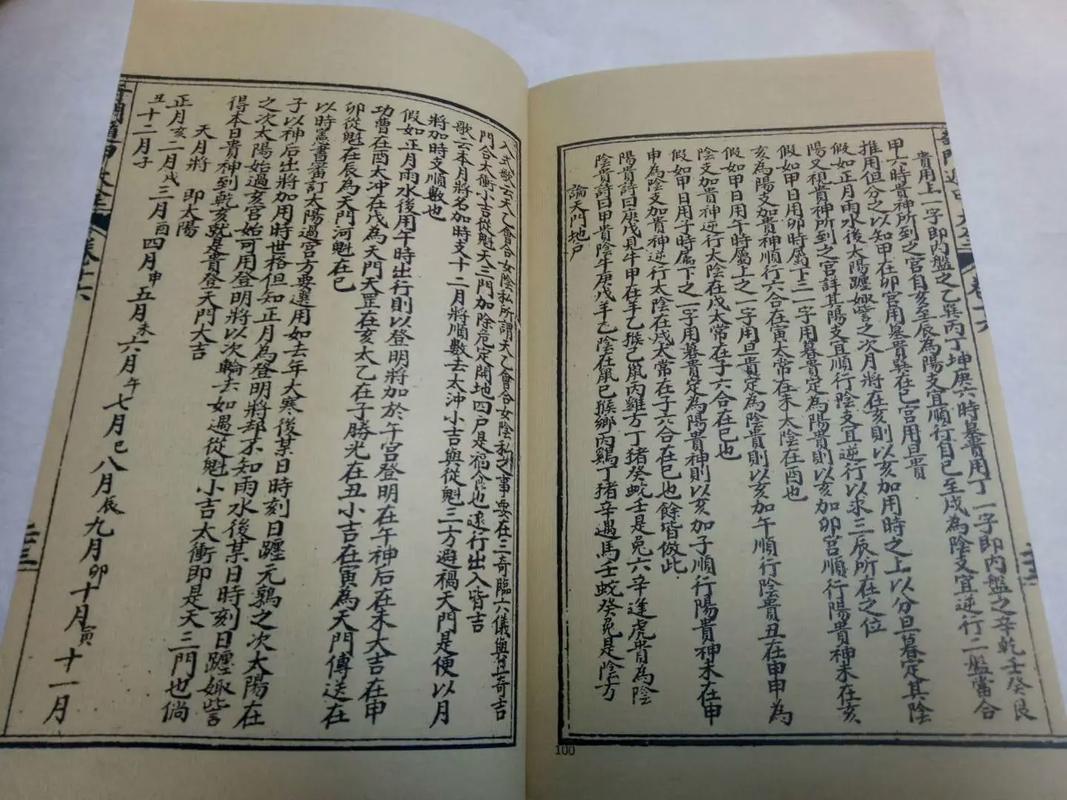 貴用上一字即內盤之乙巽丙丁坤庚六時暮貴用丁一字即內盤之辛乾壬癸艮
甲六時貴神所到之宮自亥至辰為陽支宜順行自巳至戌為陰支宜逆行二盤當合
推用但分之以知甲在卯宮用暮貴巽在巳宮用旦貴
假如正月雨水後太陽躔娵訾之次月將在亥則以亥加用時之上以分旦暮定其陰
陽又視貴神所到之宮詳其陽支宜順行陰支宜逆行以求三辰所在之位
假如甲日用卯時屬上三一字用暮貴定為陽貴則以亥加卯宮順行陽貴神未在亥
亥為陽支加貴神順行六合在寅太常在未太陰在酉也
假如甲日用午時屬上之一字用旦貴定為陰貴則以亥加午順行陰貴丑在申申為
陰支加貴神逆行太陰在戌太常在子六合在巳也
假如甲日用子時屬下之一字用暮貴定為陽貴神則以亥加子順行陽貴神未在申
申為陰支加貴神逆行太陰在戌太常在子六合在巳也餘皆倣此
陽貴詩曰庚戊見牛甲在羊乙猴己鼠丙雞方丁猪癸蛇壬是兔六辛逢虎貴為陰
陰貴詩曰甲貴陰牛庚戊羊乙陰在鼠己猴鄉丙鷄丁猪辛遇馬壬蛇癸兔是陰方
論天門地户
入式歌云天乙會合女陰私所謂太乙會合女陰私之事要在三奇臨六儀與三奇吉
門合太衝小吉從魁天三門加除危定開地四户是福食也遠行出入皆吉
歌云本月將名加時支十二月將順數去太沖小吉與從魁三方避禍天門是便以月
將加時支順數也
假如正月雨水後用午時出行則以登明將加於午宮登明在午神后在未大吉在申
功曹在酉太冲在戌為天門天罡在亥太乙在子勝光在丑小吉在寅為天門傳送在
卯從魁在辰為天門河魁在巳
以時憲書審訂太陽過宮方要選用如去年大寒後某日時刻日躔元鶉之次太陽在
子以神后出將加用時世格但知正月為登明將却不知雨水後某日時刻日躔娵訾
之次太陽始過亥宮始可用登明將以次輪去如過從魁小吉太衝即是天三門也倘
得本日貴神到乾亥就是貴登天門大吉
天月將 即太陽
正月亥二月戌三月酉四月申五月未六月午七月巳八月辰九月卯十月寅十一月
丑十二月子
100